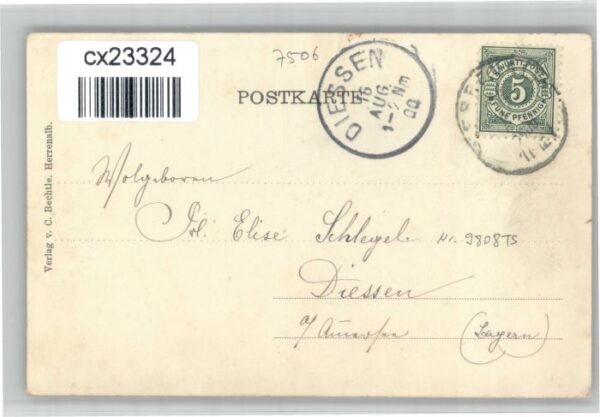 cx23324
7506
POSTKARTE
DIESSEN
16
AUG
1-2 Nm
00
5
FÜNF PFENNIG
Verlag v. C. Bechtle. Herrenalb.
Wolgeboren
Frl. Elise Schlegel
Nr. 9808TS
Diessen
a/ Ammersee (Bayern)